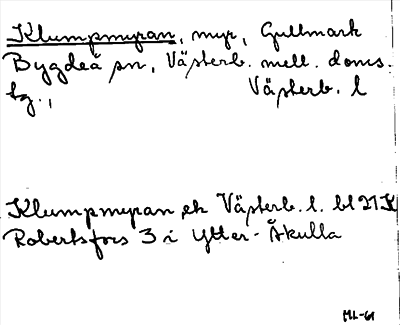 Klumpmyran, myr, Gullmark
Bygdeå sn, Västerb. mell. doms.
tg., Västerb. l
Klumpmyran ek Västerb. l. bl 21 K
Robertsfors 3 i Ytter-Åkulla
ML-61